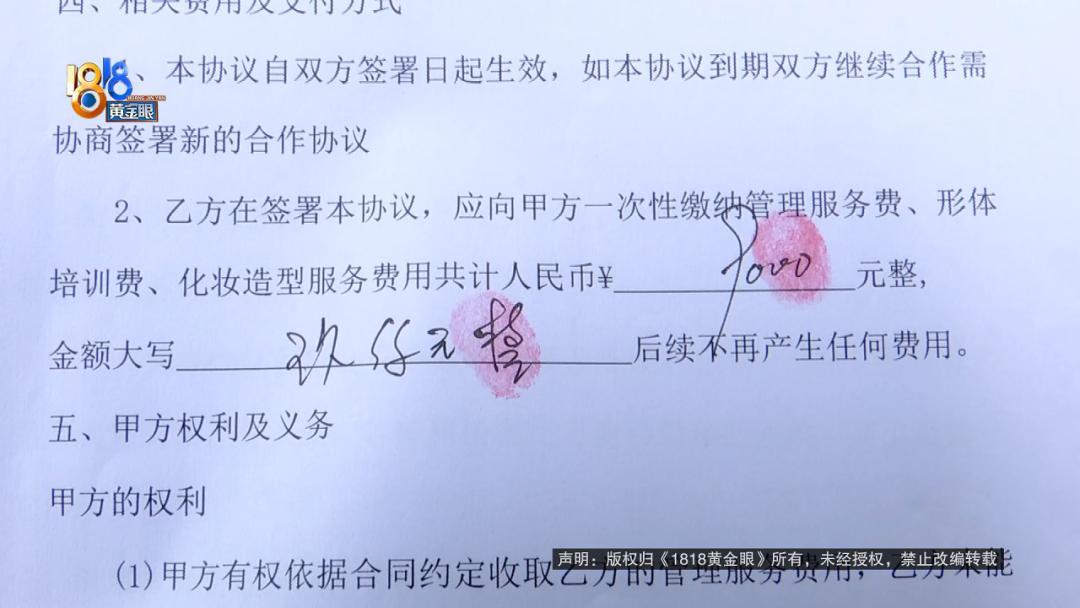 四、相关费用及支付方式
1818
黄金眼
、本协议自双方签署日起生效，如本协议到期双方继续合作需
协商签署新的合作协议
2、乙方在签署本协议，应向甲方一次性缴纳管理服务费、形体
培训费、化妆造型服务费用共计人民币¥9000元整，
金额大写玖仟元整后续不再产生任何费用。
五、甲方权利及义务
甲方的权利
(1)甲方有权依据合同约定收取乙方的管理服务费用，乙方未能
声明：版权归《1818黄金眼》所有，未经授权，禁止改编转载